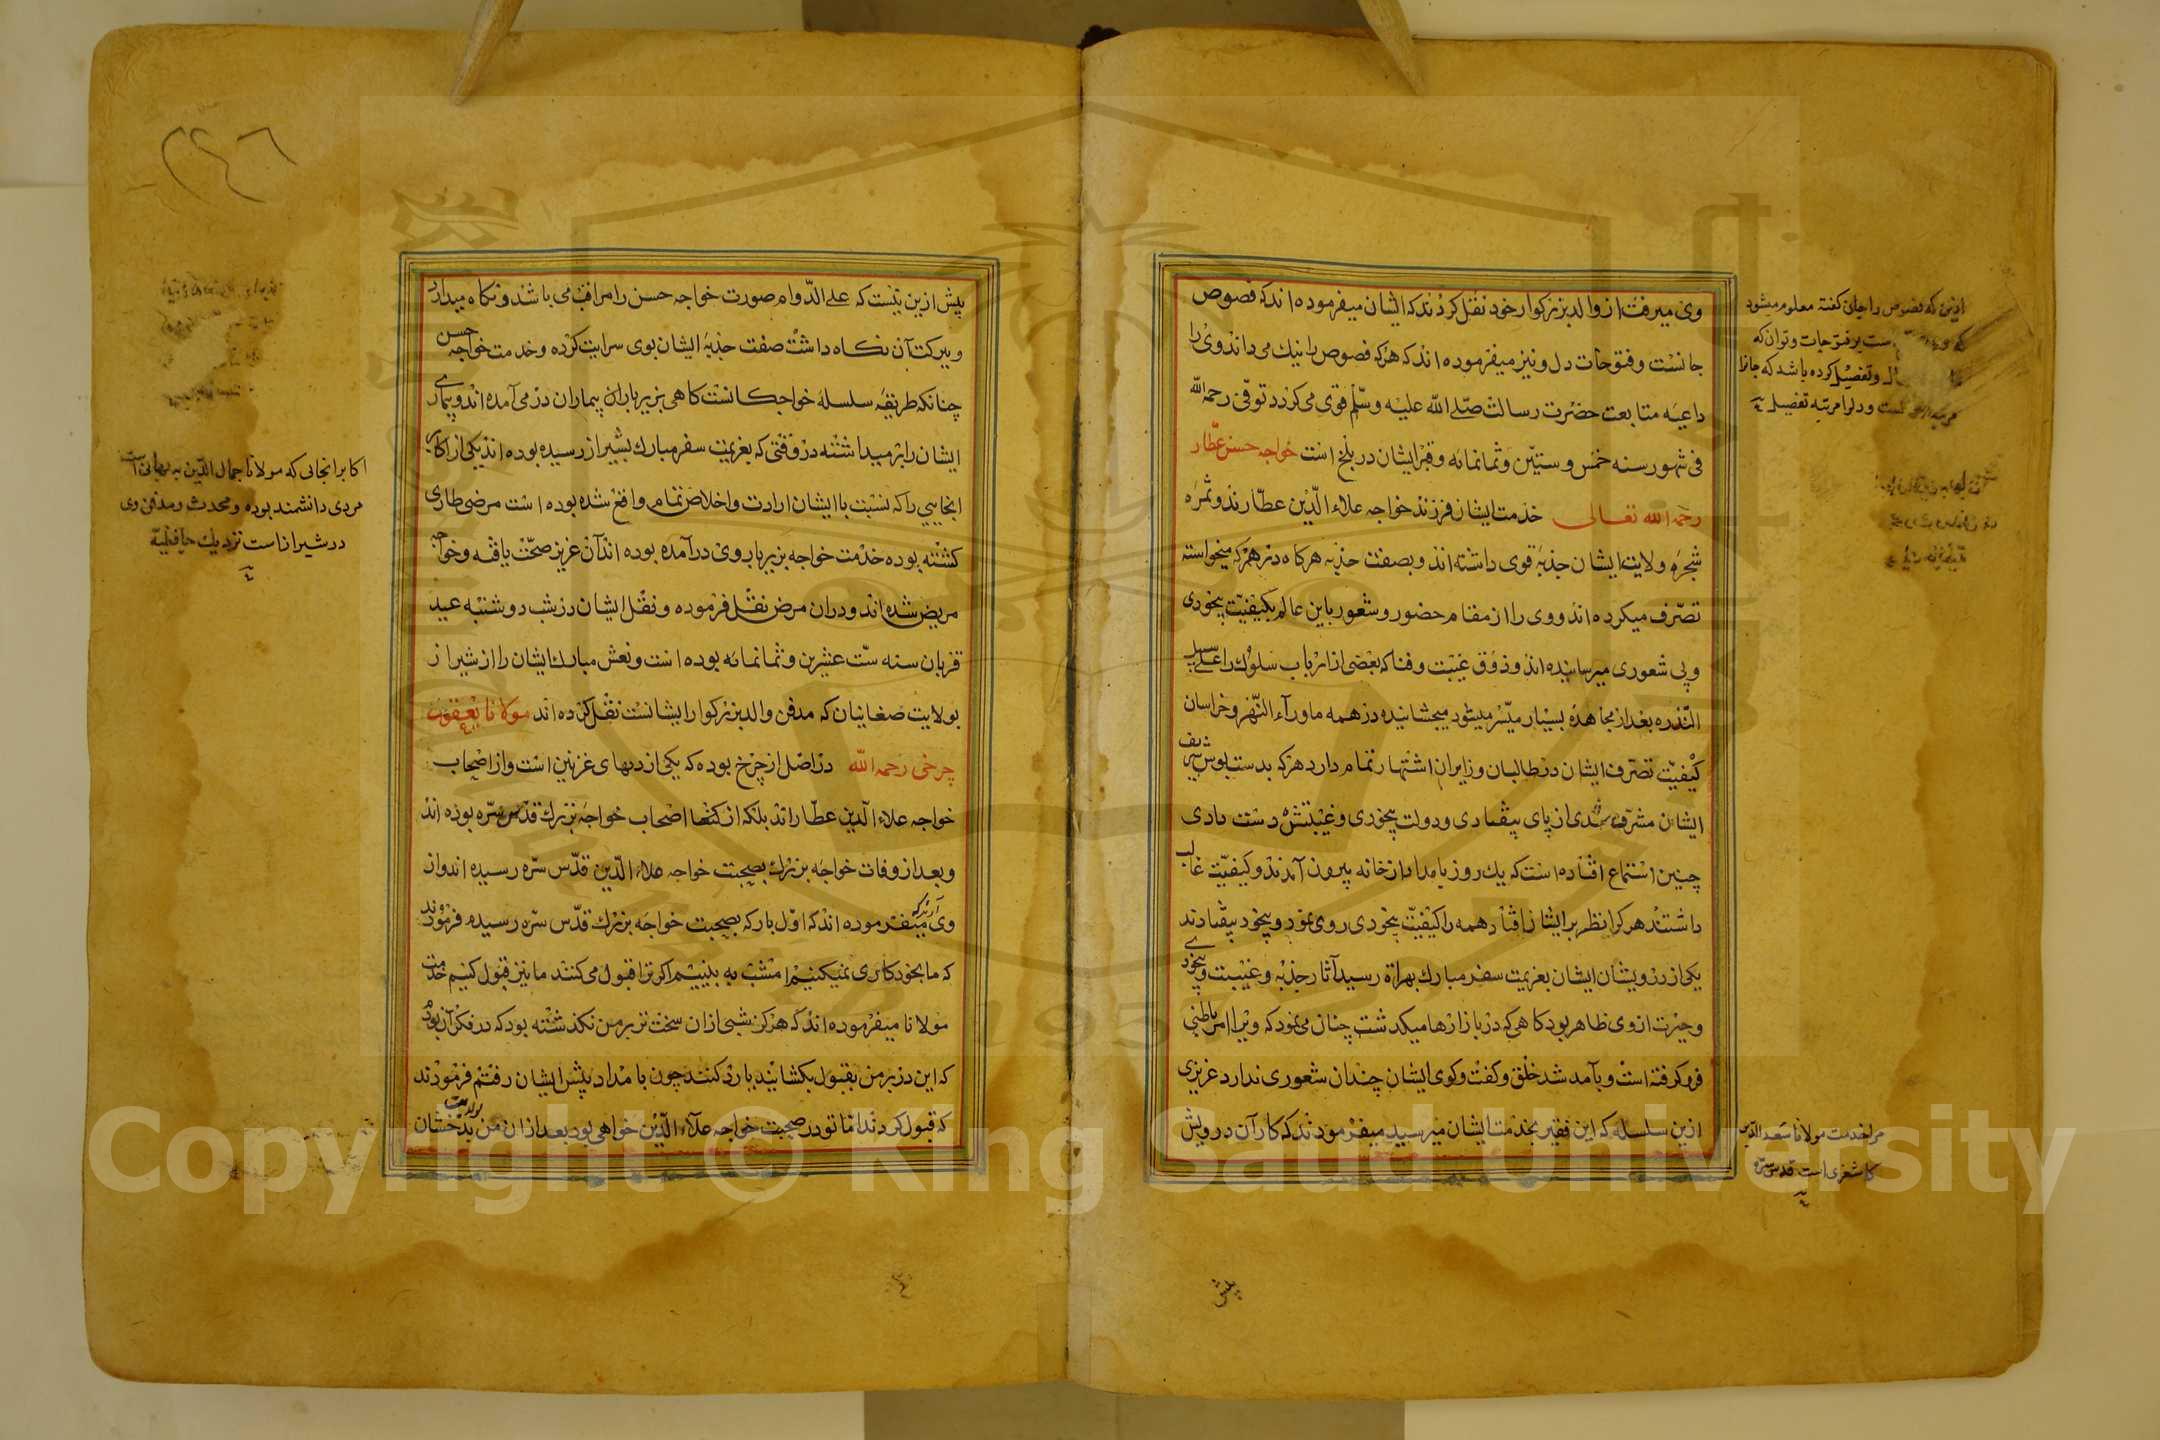 وی میرفت از والد بزرکوار خود نقل کردند که ایشان میفرموده اند که فصوص
جانست و فتوحات دل و نیز میفرموده اند که هرکه فصوص را نیک می داند وی را
داعیه متابعت حضرت رسالت صلی الله علیه وسلم قوی می کردد توفی رحمه الله
فی شهور سنه خمس و ستین و ثمانمائه و قبر ایشان در بلخ است خواجه حسن عطار
رحمه الله تعالی خدمت ایشان فرزند خواجه علاء الدین عطارند و ثمره
شجره ولایت ایشان جذبه قوی داشته اند و بصفت جذبه هرکاه در هرکه میخواسته
تصرف میکرده اند و وی را از مقام حضور و شعور باین عالم بکیفیت بیخودی
و بی شعوری میرسانیده اند و ذوق غیبت و فنا که بعضی از ارباب سلوک را علی سبیل
الندره بعد از مجاهده بسیار میسر میشود میچشانیده در همه ماوراء النهر و خراسان
کیفیت تصرف ایشان در طالبان و زایران اشتهار تمام دارد هرکه بدست بوس شریف
ایشان مشرف شدی از پای بیفتادی و دولت بیخودی و غیبتش دست دادی
چنین استماع افتاده است که یک روز بامداد از خانه بیرون آمدند و کیفیت غالب
داشتند هرکرا نظر بر ایشان افتاد همه را کیفیت بیخودی روی نمود و بیخود بیفتادند
یکی از درویشان ایشان بعزیمت سفر مبارک بهراة رسید آثار جذبه و غیبت و بیخودی
و حیرت از وی ظاهر بود کاهی که در بازارها میکدشت چنان می نمود که ویرا امر باطنی
فرو کرفته است و بآمد شد خلق و کفت و کوی ایشان چندان شعوری ندارد عزیزی
ازین سلسله که این فقیر بخدمت ایشان میرسید میفرمودند که کار آن درویش
ازین که فصوص را جان کفته معلوم میشود
است بر فتوحات و توان که
و تفصیل کرده باشد که جانرا
است و دلرا مرتبه تفصیل
مراد خدمت مولانا سعد الدین
کاشغری است قدس سره
پیش
پیش ازین نیست که علی الدوام صورت خواجه حسن را مراقب می باشد و نکاه میدارد
و ببرکت آن نکاه داشت صفت جذبه ایشان بوی سرایت کرده و خدمت خواجه حسن
چنانکه طریقه سلسله خواجکانست کاهی بزیر بار بیماران در می آمده اند و بیماری
ایشان را بر میداشته در وقتی که بعزیمت سفر مبارک بشیراز رسیده بوده اند یکی از اکابر
انجایی را که نسبت با ایشان ارادت و اخلاص تمام واقع شده بوده است مرضی طاری
کشته بوده خدمت خواجه بزیر بار وی درآمده بوده اند آن عزیز صحت یافته و خواجه
مریض شده اند و دران مرض نقل فرموده و نقل ایشان در شب دوشنبه عید
قربان سنه ست عشرین و ثمانمائه بوده است و نعش مبارک ایشان را از شیراز
بولایت صغانیان که مدفن والد بزرکوار ایشانست نقل کرده اند مولانا یعقوب
چرخی رحمه الله در اصل از چرخ بوده که یکی از دیهای غزنین است و از اصحاب
خواجه علاء الدین عطار اند بلکه از کبار اصحاب خواجه بزرک قدس سره بوده اند
و بعد از وفات خواجه بزرک بصحبت خواجه علاء الدین قدس سره رسیده اند و از
وی آرند که میفرموده اند که اول بار که بصحبت خواجه بزرک قدس سره رسیدم فرمودند
که ما بخود کاری نمیکنیم امشب به بینیم اکر ترا قبول می کنند ما نیز قبول کنیم خدمت
مولانا میفرموده اند که هرکز شبی ازان سخت تر بر من نکذشته بود که در فکر آن بودم
که این در بر من بقبول بکشایند یا رد کنند چون بامداد پیش ایشان رفتم فرمودند
که قبول کردند اما تو در صحبت خواجه علاء الدین خواهی بود بعد ازان من بولایت بدخشان
اکابر انجائی که مولانا جمال الدین
مردی دانشمند بوده و محدث و مدفن وی
در شیراز است نزدیک حافظیه
Copyright © King Saud University
1957